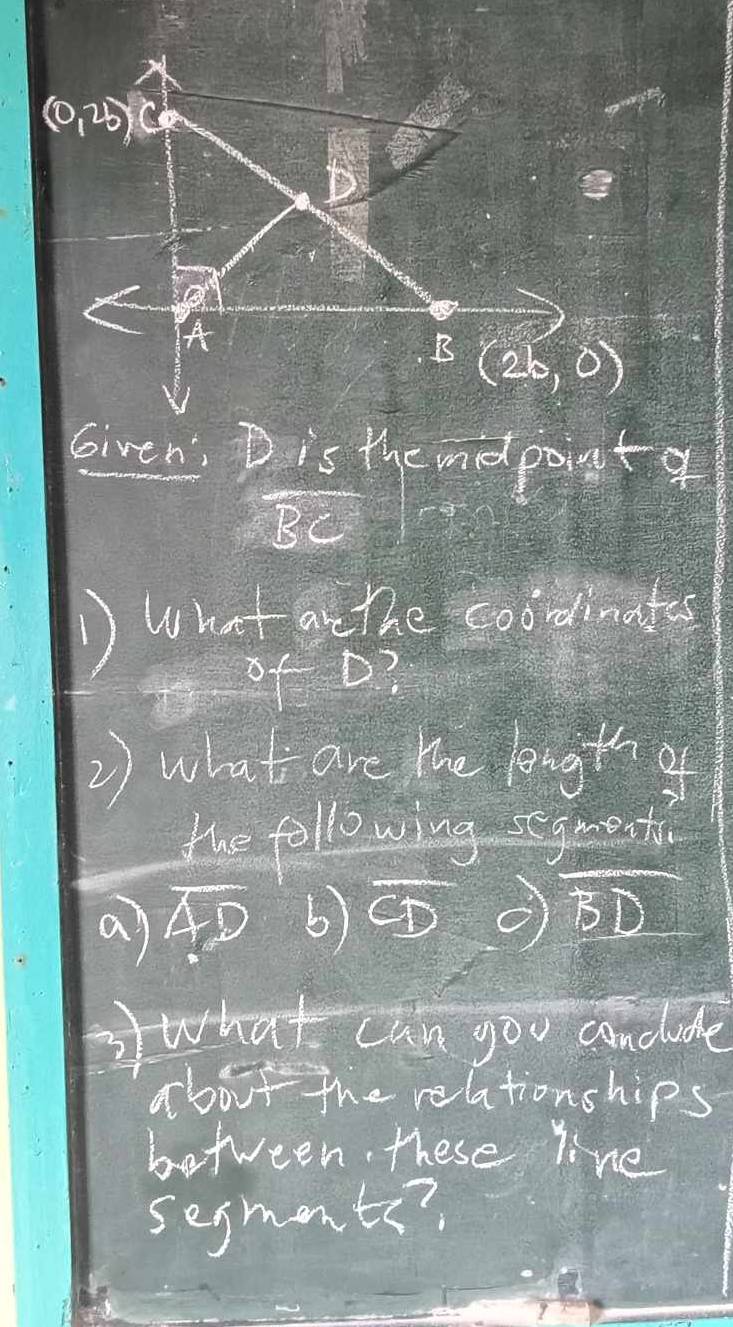 (0,2b) C
D
A
B (2b, 0)
Given: D is the midpoint of
BC
1) What are the coordinates
of D?
2) What are the length of
the following segments?
a) AD b) CD c) BD
3) What can you conclude
about the relationships
between these line
segments?